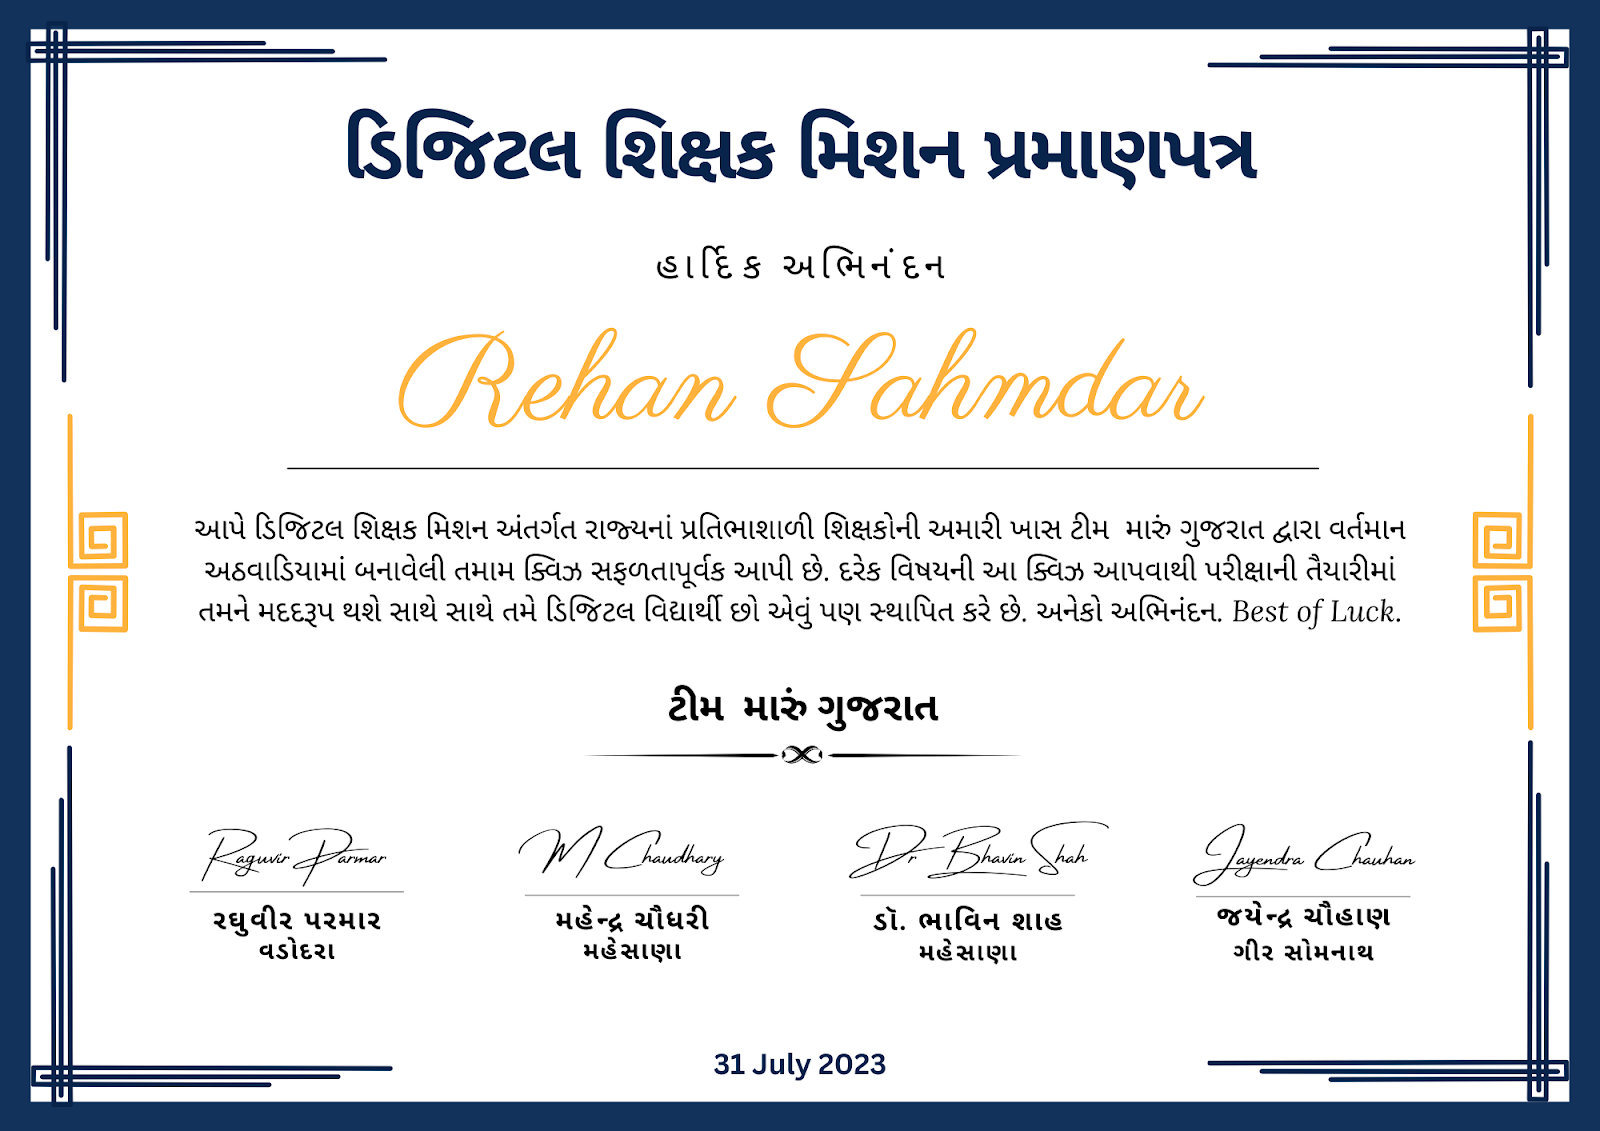 ડિજિટલ શિક્ષક મિશન પ્રમાણપત્ર
હાર્દિક અભિનંદન
Rehan Sahmdar
આપે ડિજિટલ શિક્ષક મિશન અંતર્ગત રાજ્યનાં પ્રતિભાશાળી શિક્ષકોની અમારી ખાસ ટીમ મારું ગુજરાત દ્વારા વર્તમાન
અઠવાડિયામાં બનાવેલી તમામ ક્વિઝ સફળતાપૂર્વક આપી છે. દરેક વિષયની આ ક્વિઝ આપવાથી પરીક્ષાની તૈયારીમાં
તમને મદદરૂપ થશે સાથે સાથે તમે ડિજિટલ વિદ્યાર્થી છો એવું પણ સ્થાપિત કરે છે. અનેકો અભિનંદન. Best of Luck.
ટીમ મારું ગુજરાત
Raguvir Parmar
રઘુવીર પરમાર
વડોદરા
M Chaudhary
મહેન્દ્ર ચૌધરી
મહેસાણા
Dr Bhavin Shah
ડૉ. ભાવિન શાહ
મહેસાણા
Jayendra Chauhan
જયેન્દ્ર ચૌહાણ
ગીર સોમનાથ
31 July 2023